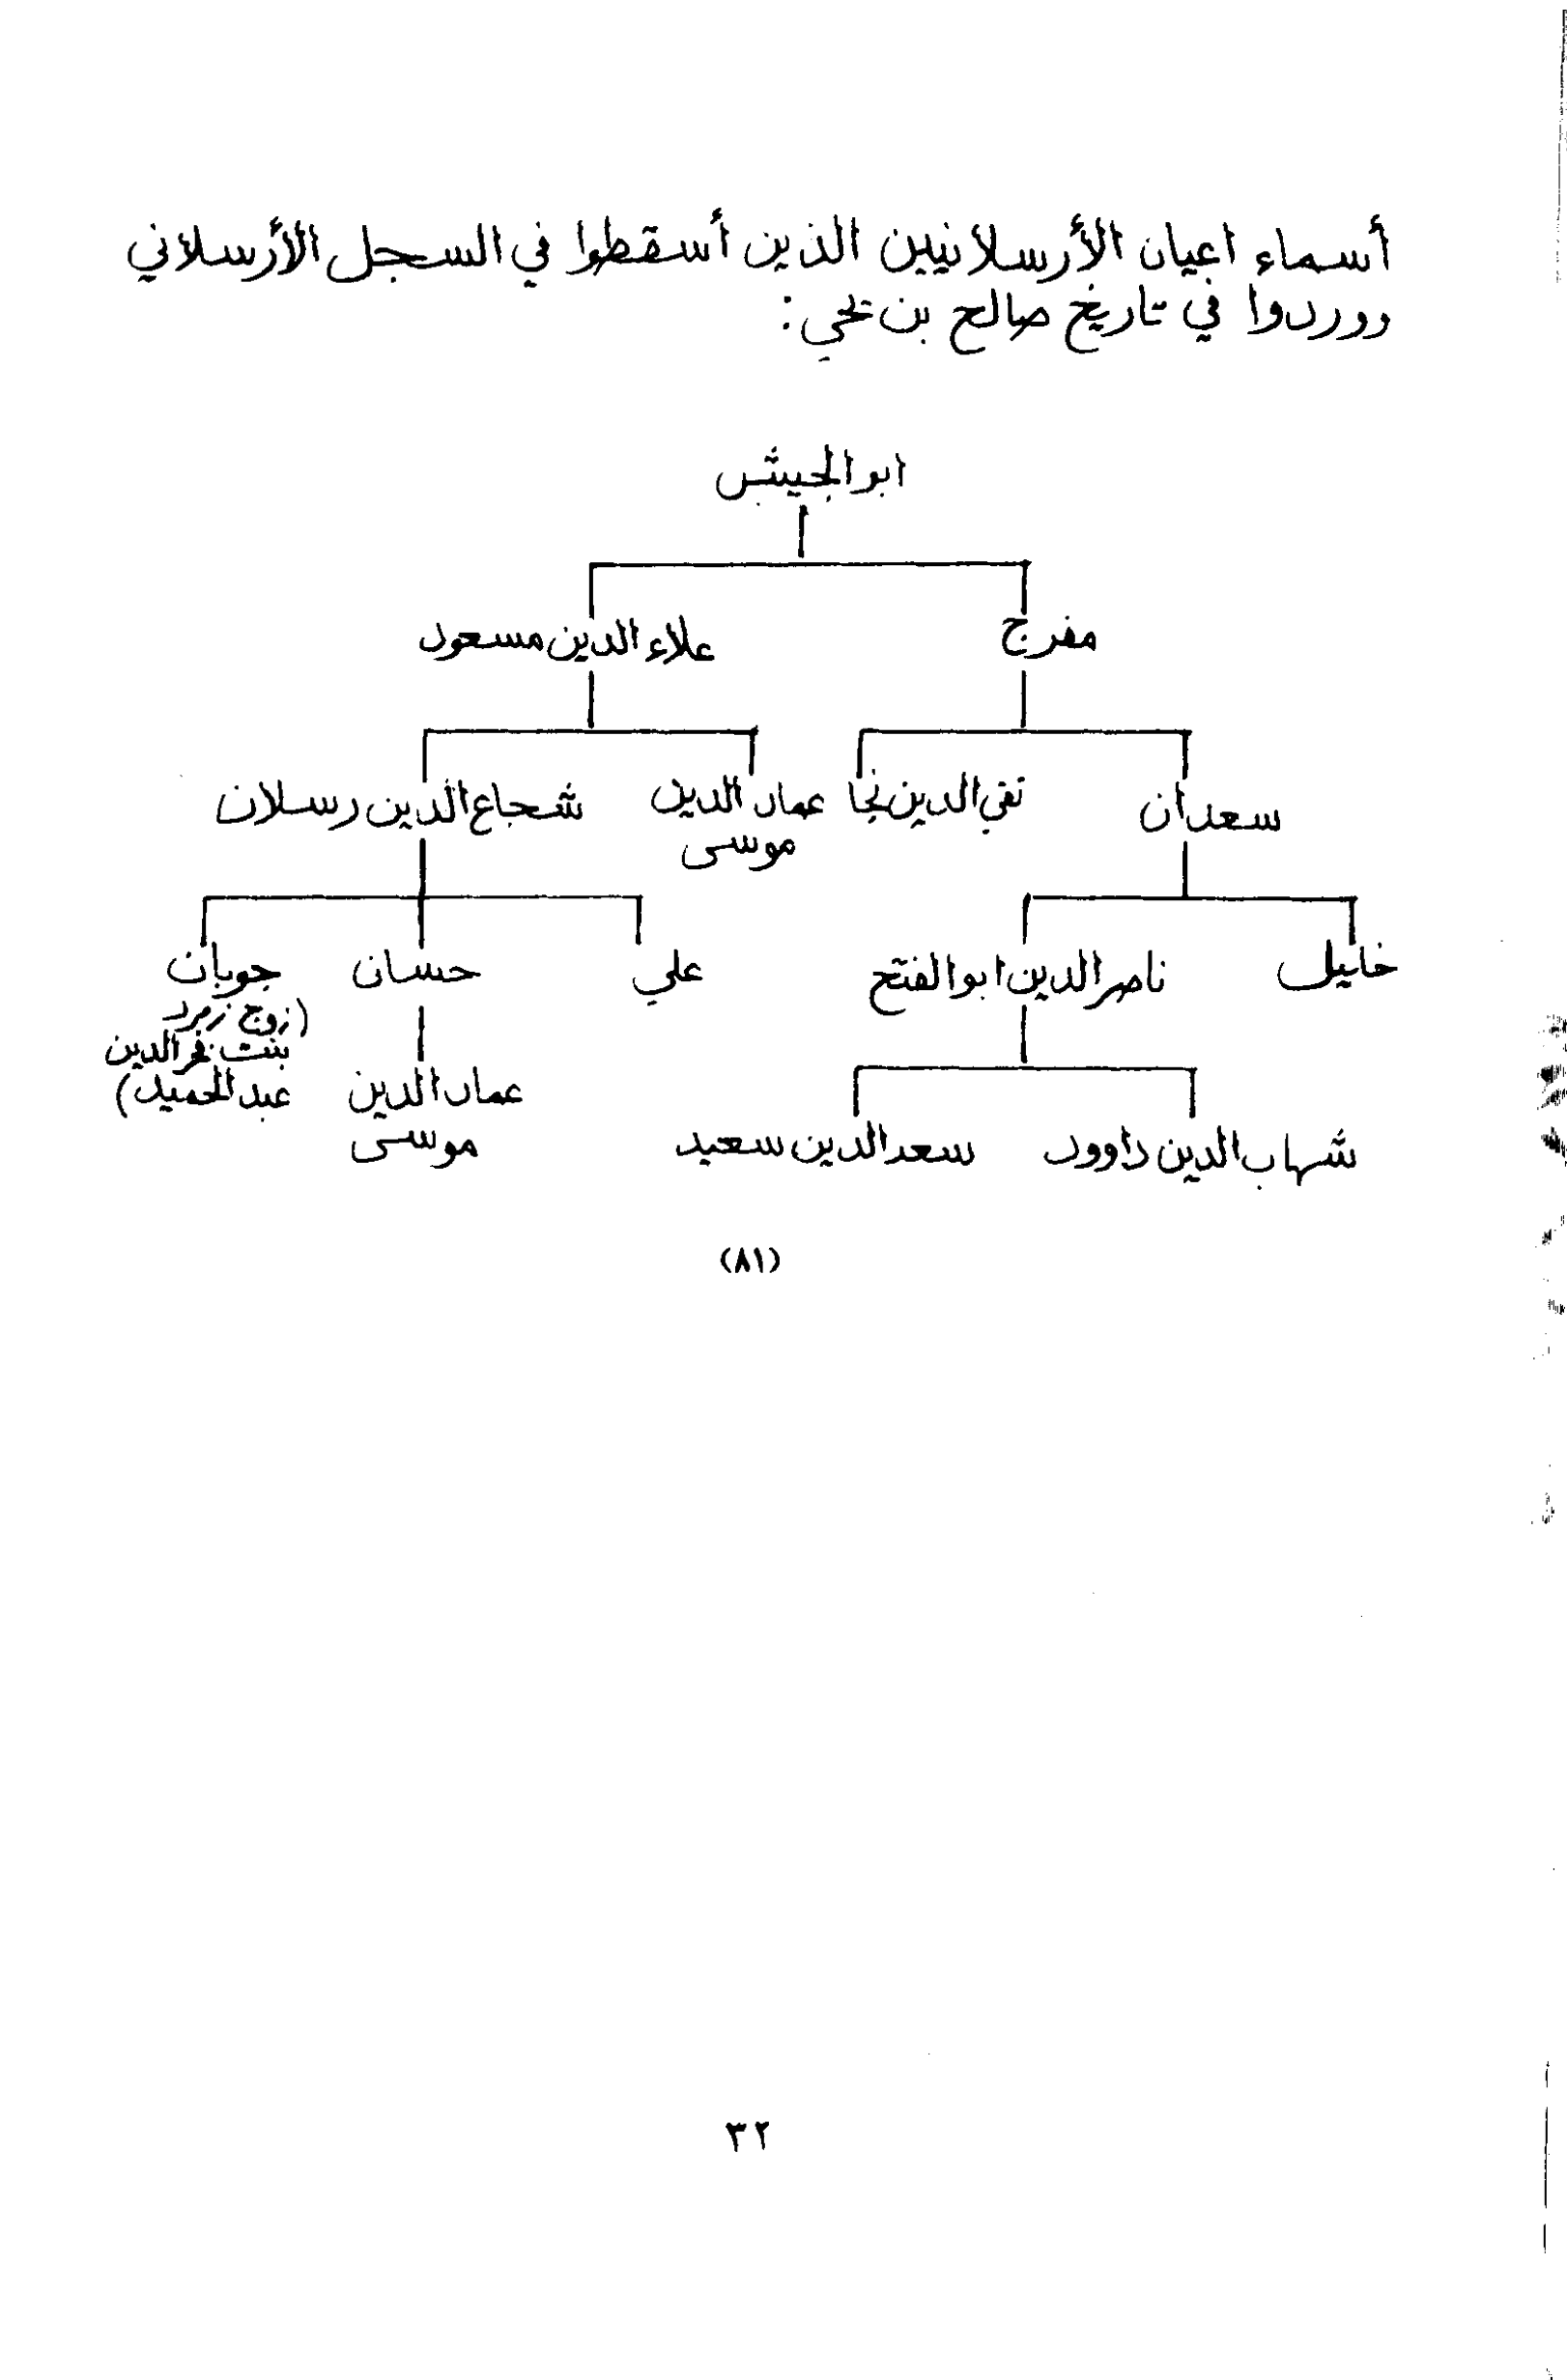 أسماء اعيان الأرسلانيين الذين أسقطوا في السجل الأرسلاني
ووردوا في تاريخ صالح بن يحي:
ابو الجيش
مفرج
علاء الدين مسعود
سعدان
تقي الدين نجا
عماد الدين
موسى
شجاع الدين رسلان
خليل
ناصر الدين ابو الفتح
علي
حسان
جوبان
(زوج زمرد
بنت فخر الدين
عبد الحميد)
عماد الدين
موسى
شهاب الدين داوود
سعد الدين سعيد
(٨١)
٣٢